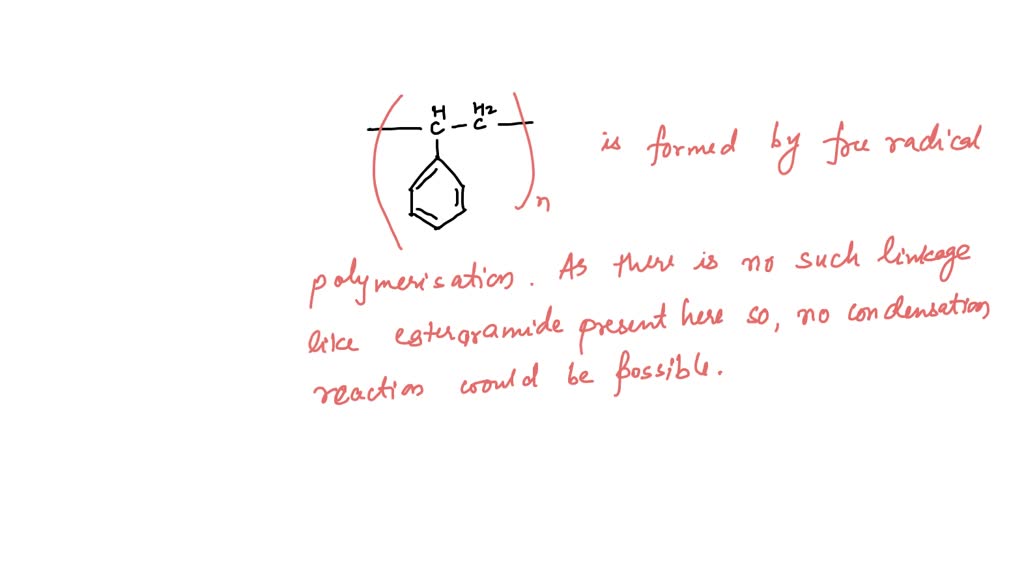 H H2
C - C
n
is formed by free radical
polymerisation. As there is no such linkage
like ester or amide present here so, no condensation
reaction would be possible.